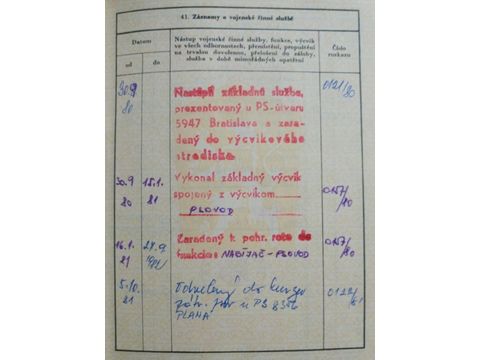 41. Záznamy o vojenské činné službě
Datum
od
do
Nástup vojenské činné služby, funkce, výcvik
ve všech odbornostech, přemístění, propuštění
na trvalou dovolenou, přeložení do zálohy,
služba v době mimořádných opatření
Číslo
rozkazu
30.9
80
Nastúpil základnú službu,
prezentovaný u PS-útvaru
5947 Bratislava a zara-
dený do výcvikového
strediska
0121/80
30.9
80
15.1.
81
Vykonal základný výcvik
spojený z výcvikom
PSOVOD
0157/
80
16.1.
81
27.9
Zaradený k pohr. rote do
funkcie: NABÍJAČ-PSOVOD
0157/
80
5.10.
81
Odvelený do kurzu
u PS
PLANÁ